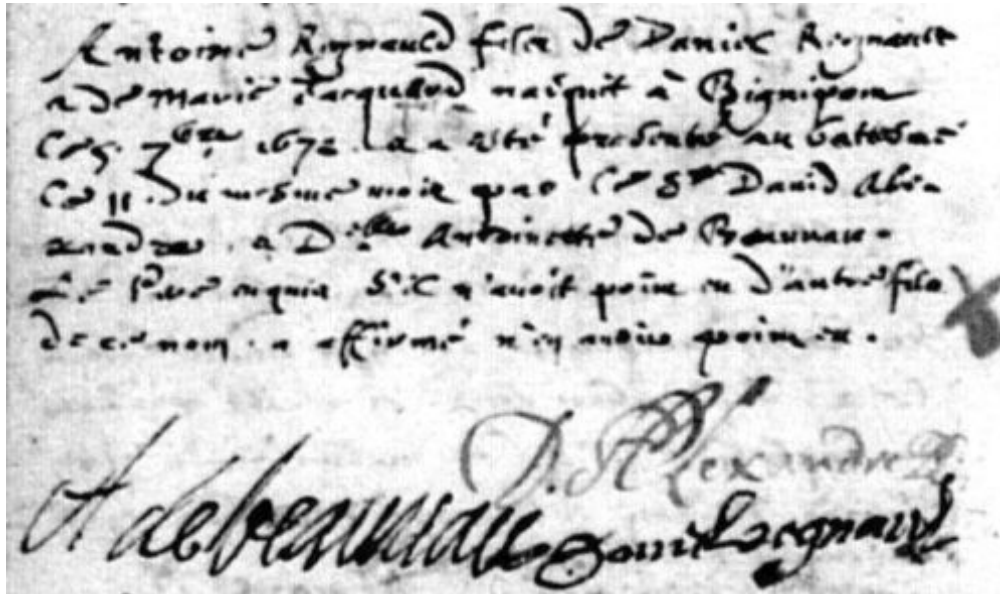 Antoine Regnauld filz de Daniel Regnault
& de Marie Jacquard naiquit à Bignipon
le 5. 7bre 1672. & a esté presenté au batesme
le 11. du mesme mois par le Sr David Alex-
andre. & Delle Antoinette de Beauvau.
Le Pere enquis s'il n'avoit point eu d'autre filz
de ce nom. a affirmé n'en avoir point eu.
D. Alexandre
A de beauvau Regnault